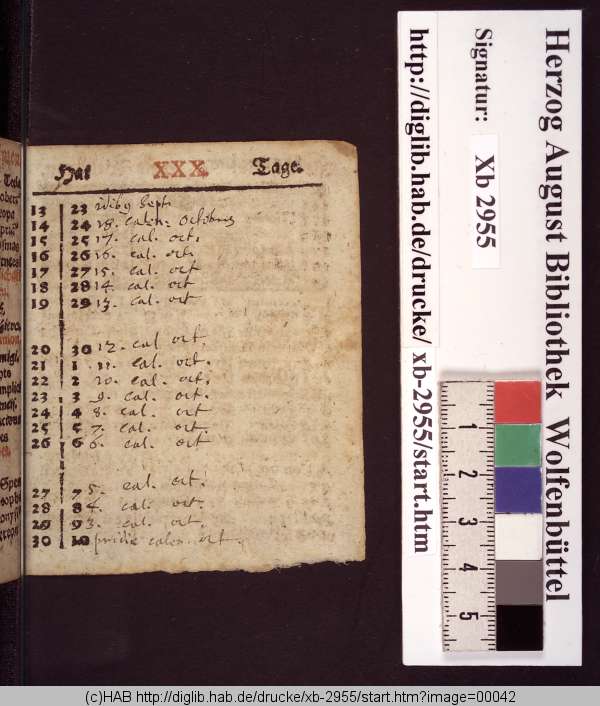 Hat XXX. Tage.
13 23 idiby Sept.
14 24 18. calen: Octobris
15 25 17. cal. oct.
16 26 16. cal. oct.
17 27 15. cal. oct
18 28 14. cal. oct
19 29 13. cal. oct
20 30 12. cal oct.
21 1 11. cal. oct.
22 2 10. cal. oct.
23 3 9. cal. oct.
24 4 8. cal. oct
25 5 7. cal. oct
26 6 6. cal. oct
27 7 5. cal. oct.
28 8 4. cal. oct.
29 9 3. cal. oct.
30 10 pridie calen. oct.
Herzog August Bibliothek Wolfenbüttel
Signatur: Xb 2955
http://diglib.hab.de/drucke/ xb-2955/start.htm
1 2 3 4 5
(c)HAB http://diglib.hab.de/drucke/xb-2955/start.htm?image=00042